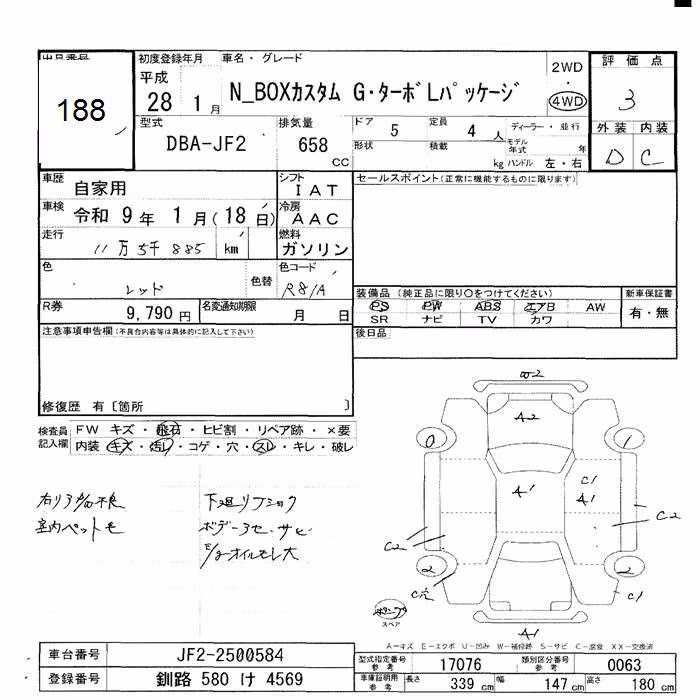 出品番号
188
初度登録年月
平成
28 1月
車名・グレード
N_BOXカスタム G・ターボLパッケージ
2WD
4WD
評価点
3
型式
DBA-JF2
排気量
658
CC
ドア 5
定員 4人
ディーラー・並行
形状
積載 kg
モデル年式 年
ハンドル 左・右
外装 内装
D C
車歴 自家用
シフト IAT
セールスポイント(正常に機能するものに限ります)
車検 令和 9年 1月(18日)
冷房 AAC
走行 11万5千885 km
燃料 ガソリン
色 レッド
色替
色コード R81A
装備品 (純正品に限り○をつけてください)
新車保証書
PS PW ABS エアB AW
SR ナビ TV カワ
有・無
R券 9,790円
名変通知期限 月 日
後日品
注意事項申告欄(不具合内容等は具体的に記入して下さい)
修復歴 有 〔箇所 〕
検査員記入欄
FW キズ・飛石・ヒビ割・リペア跡・×要
内装 キズ・汚レ・コゲ・穴・スレ・キレ・破レ
室内ペットモ
下廻リ
ボデーコセ・サビ
オイルモレ大
A2
0
1
A1
C1
A1
C2
C2
2
2
C穴
C1
スペア
A1
A－キズ E－エクボ U－凹み W－補修跡 S－サビ C－腐食 XX－交換済
車台番号 JF2-2500584
登録番号 釧路 580 け 4569
型式指定番号 参考 17076
類別区分番号 参考 0063
車庫証明用 参考 長さ 339 cm 幅 147 cm 高さ 180 cm